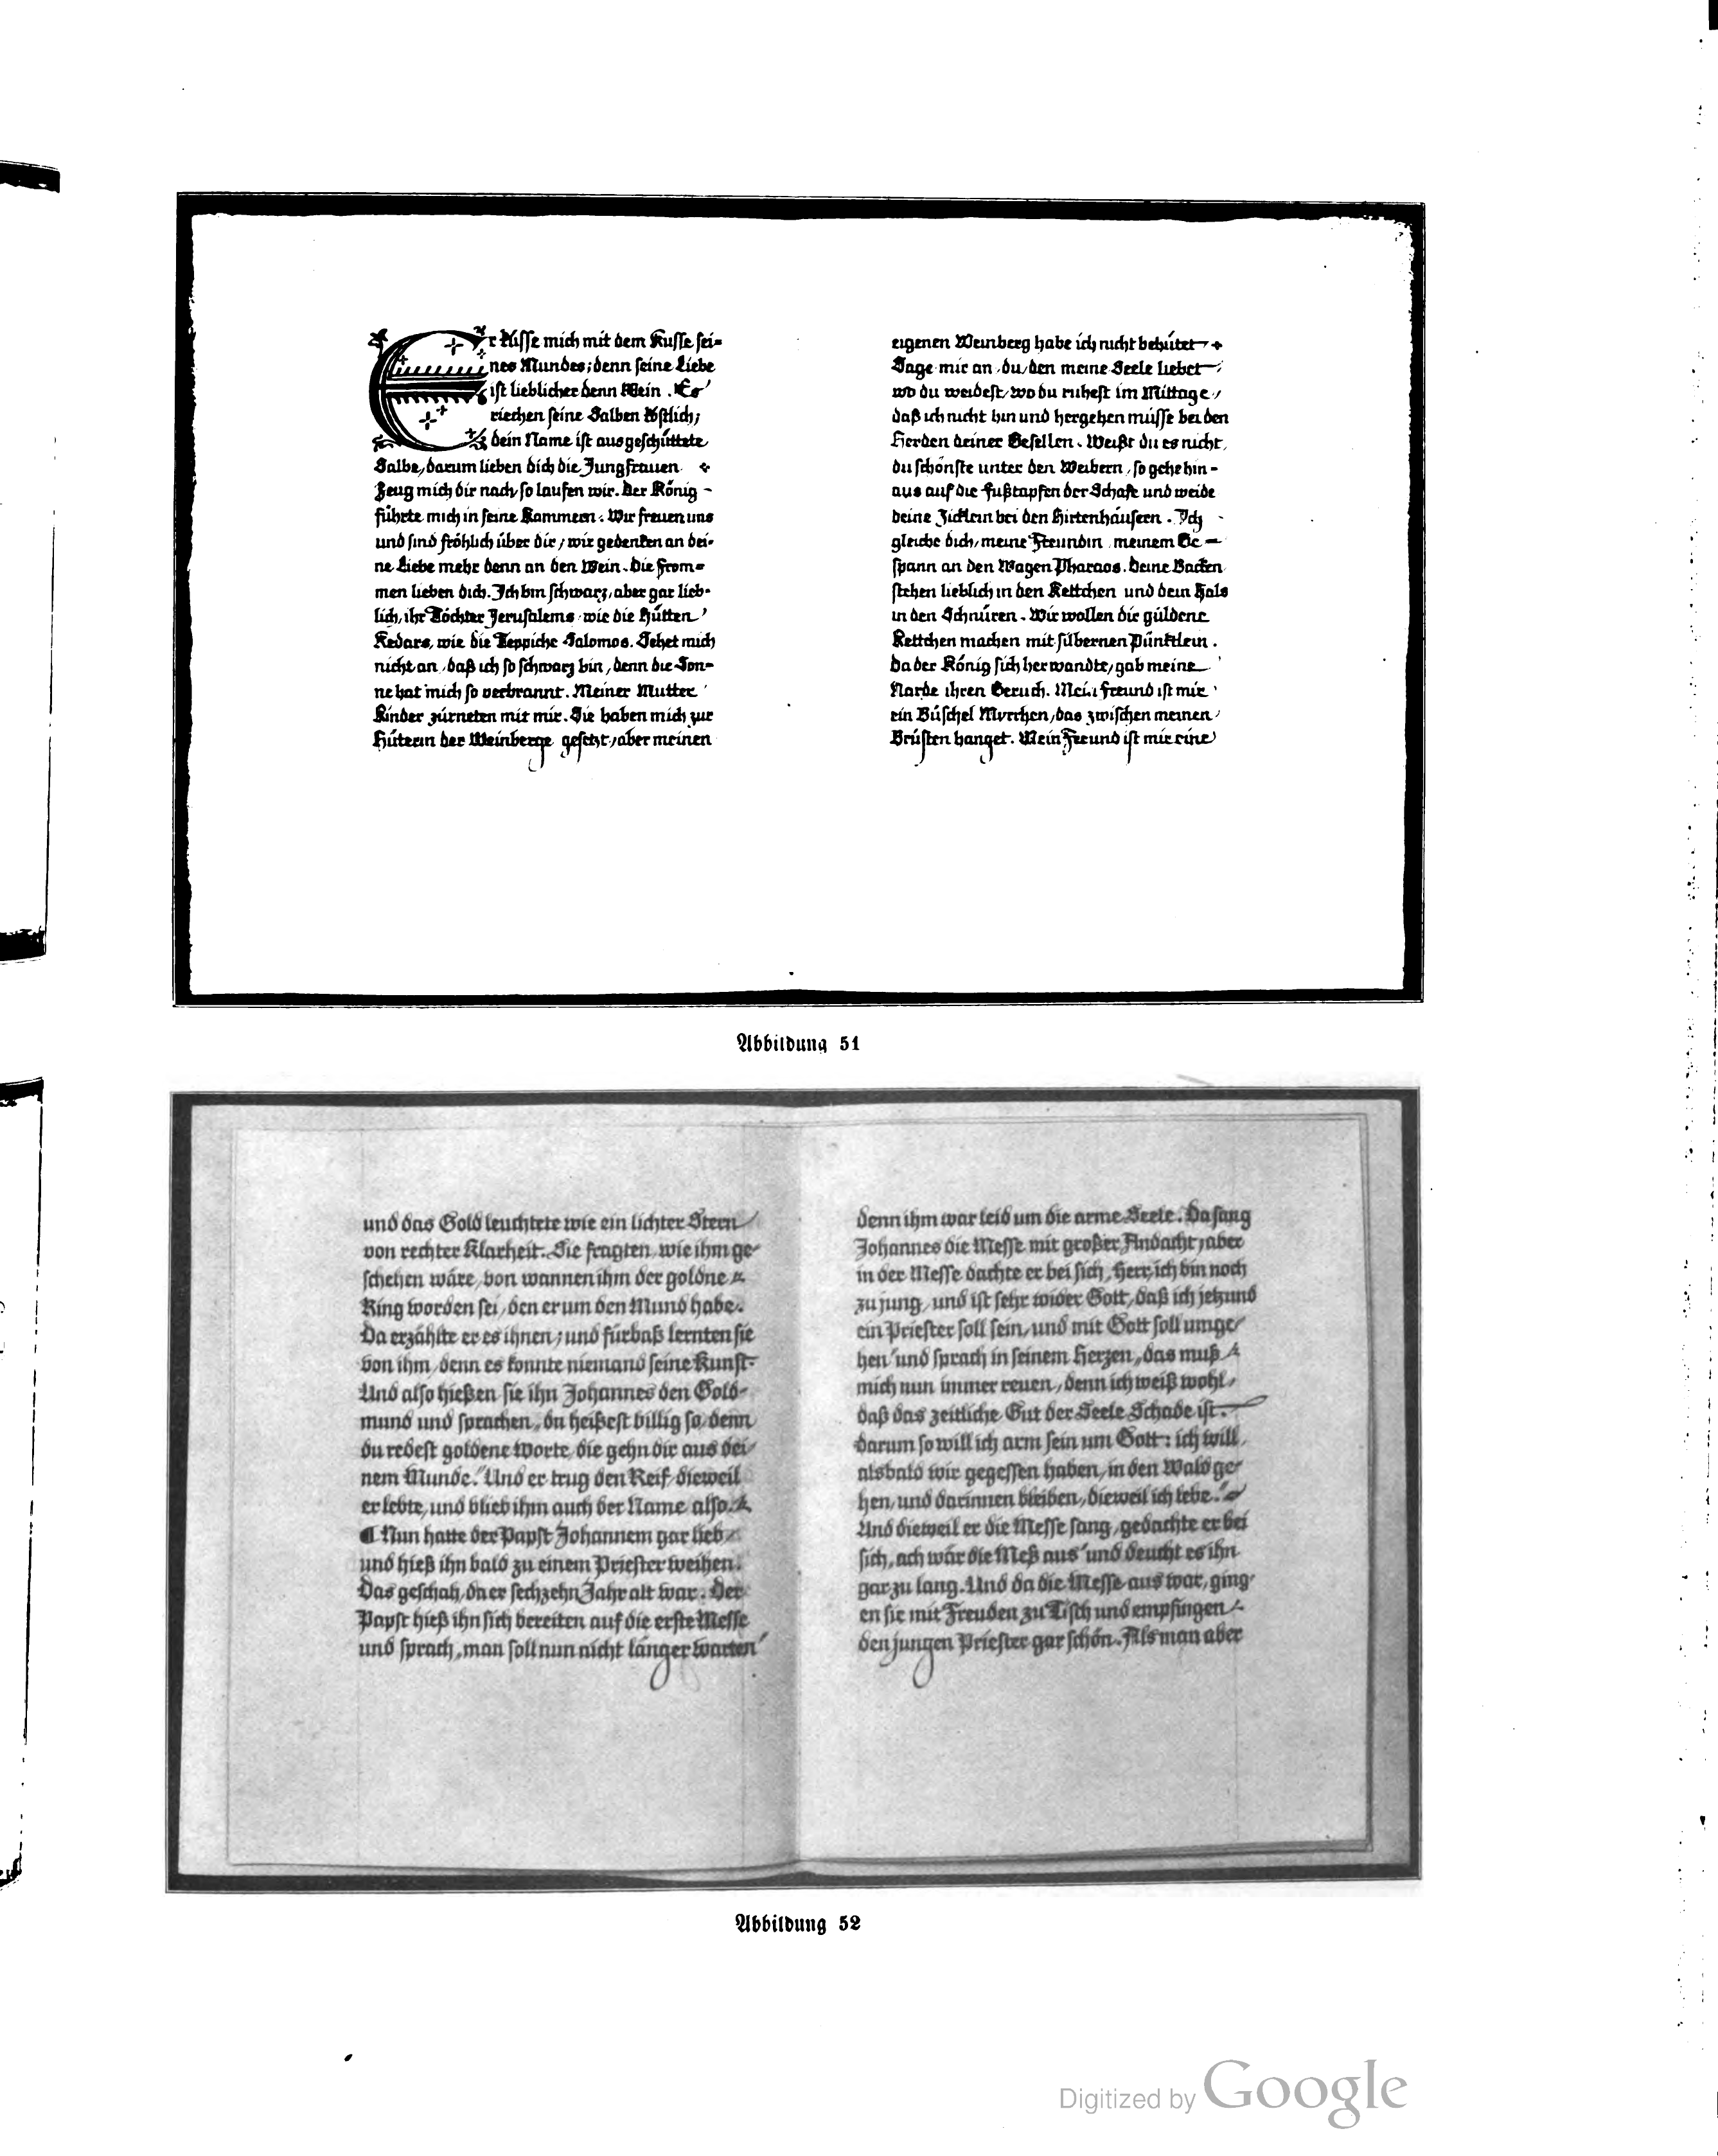 Er küsse mich mit dem Kusse sei=
nes Mundes; denn seine Liebe
ist lieblicher denn Wein. Es
riechen seine Salben köstlich;
dein Name ist ausgeschüttete
Salbe, darum lieben dich die Jungfrauen.
Zeug mich dir nach, so laufen wir. Der König
führte mich in seine Kammern. Wir freuen uns
und sind fröhlich über dir; wir gedenken an dei-
ne Liebe mehr denn an den Wein. Die From=
men lieben dich. Ich bin schwarz, aber gar lieb-
lich, ihr Töchter Jerusalems, wie die Hütten
Kedars, wie die Teppiche Salomos. Sehet mich
nicht an, daß ich so schwarz bin, denn die Son=
ne hat mich so verbrannt. Meiner Mutter
Kinder zürneten mit mir. Sie haben mich zur
Hüterin der Weinberge gesetzt, aber meinen
eigenen Weinberg habe ich nicht behütet.
Sage mir an, du, den meine Seele liebet,
wo du weidest, wo du ruhest im Mittage,
daß ich nicht hin und hergehen müsse bei den
Herden deiner Gesellen. Weißt du es nicht,
du schönste unter den Weibern, so gehe hin-
aus auf die Fußtapfen der Schafe und weide
deine Zicklein bei den Hirtenhäusern. Ich
gleiche dich, meine Freundin, meinem Ge=
spann an den Wagen Pharaos. Deine Backen
stehen lieblich in den Kettchen und dein Hals
in den Schnüren. Wir wollen dir güldene
Kettchen machen mit silbernen Pünktlein.
Da der König sich herwandte, gab meine
Narde ihren Geruch. Mein Freund ist mir
ein Büschel Myrrhen, das zwischen meinen
Brüsten hanget. Mein Freund ist mir eine
Abbildung 51
und das Gold leuchtete wie ein lichter Stern
von rechter Klarheit. Sie fragten, wie ihm ge-
schehen wäre, von wannen ihm der goldne
Ring worden sei, den er um den Mund habe.
Da erzählte er es ihnen; und fürbaß lernten sie
von ihm, denn es konnte niemand seine Kunst.
Und also hießen sie ihn Johannes den Gold-
mund und sprachen „du heißest billig so, denn
du redest goldene Worte, die gehn dir aus dei-
nem Munde." Und er trug den Reif, dieweil
er lebte, und blieb ihm auch der Name also.
¶ Nun hatte der Papst Johannem gar lieb
und hieß ihn bald zu einem Priester weihen.
Das geschah, da er sechzehn Jahr alt war. Der
Papst hieß ihn sich bereiten auf die erste Messe
und sprach „man soll nun nicht länger warten"
denn ihm war leid um die arme Seele. Da sang
Johannes die Messe mit großer Andacht, aber
in der Messe dachte er bei sich „Herr, ich bin noch
zu jung, und ist sehr wider Gott, daß ich jetzund
ein Priester soll sein, und mit Gott soll umge-
hen" und sprach in seinem Herzen „das muß
mich nun immer reuen, denn ich weiß wohl,
daß das zeitliche Gut der Seele Schade ist.
darum so will ich arm sein um Gott: ich will,
alsbald wir gegessen haben, in den Wald ge-
hen, und darinnen bleiben, dieweil ich lebe."
Und dieweil er die Messe sang, gedachte er bei
sich „ach wär die Meß aus" und deucht es ihn
gar zu lang. Und da die Messe aus war, ging-
en sie mit Freuden zu Tisch und empfingen
den jungen Priester gar schön. Als man aber
Abbildung 52
Digitized by Google